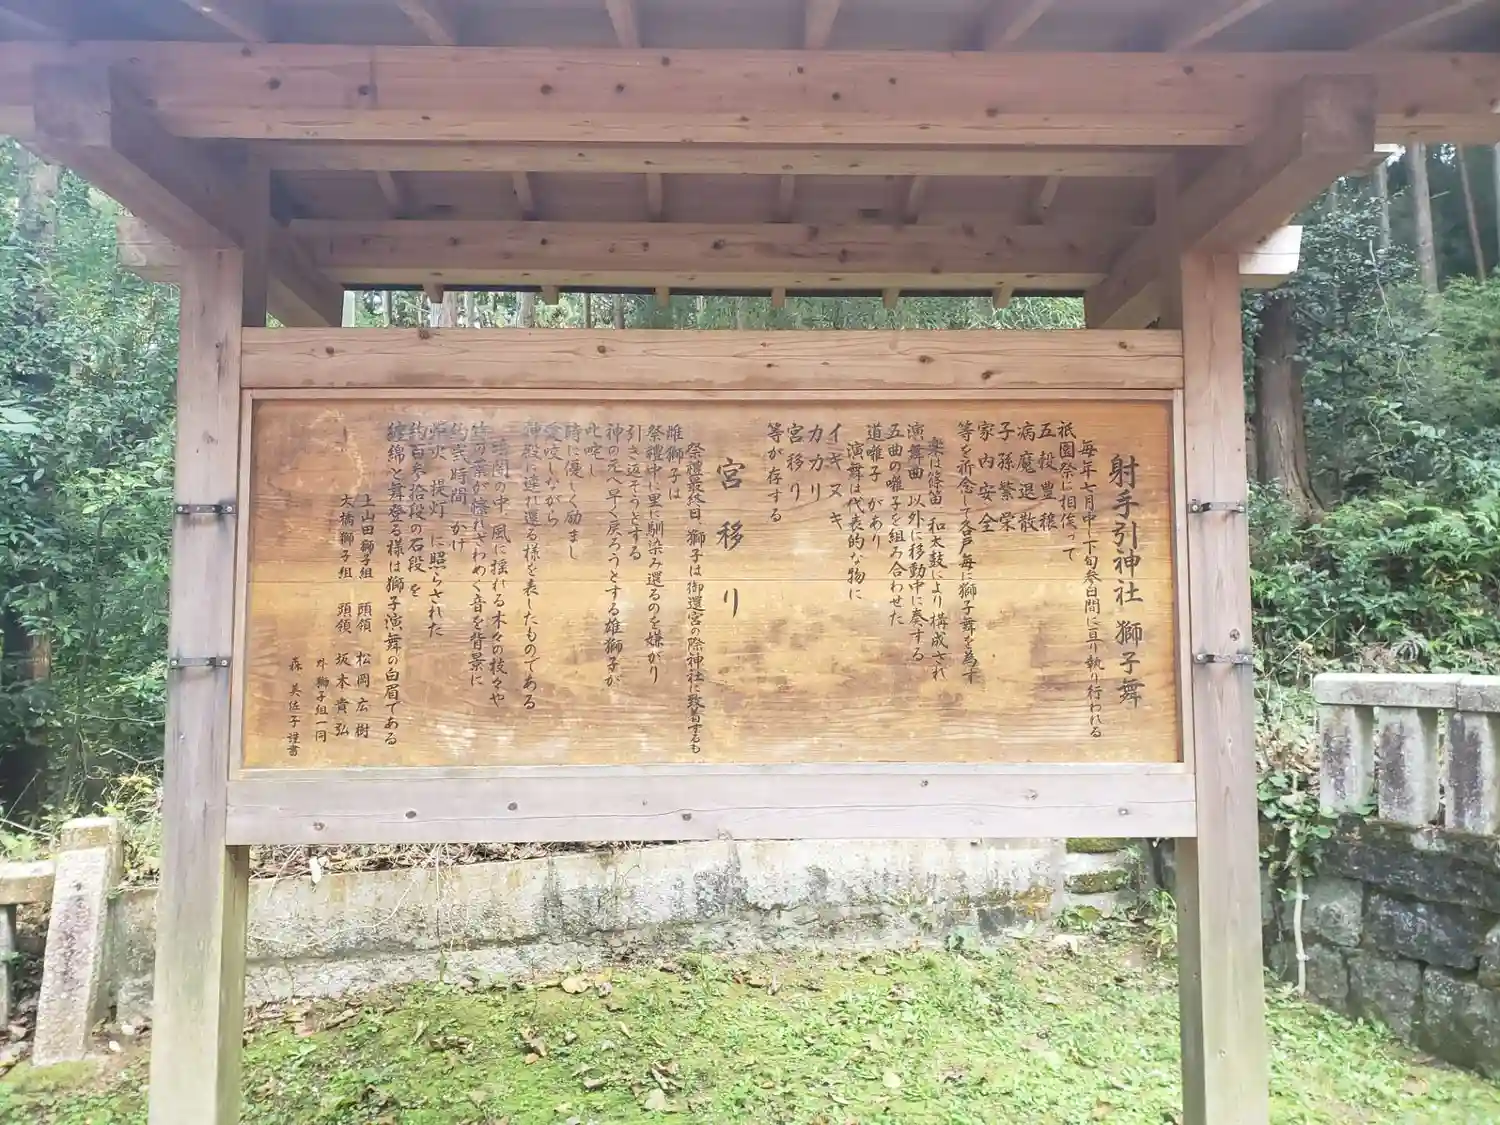 射手引神社 獅子舞
毎年七月中し下旬参白間に亘り執り行われる
祇園祭に相俟って
五穀豊穣
病魔退散
子孫繁栄
家内安全
等を祈念して各戸毎に獅子舞を為す
楽は篠笛 和太鼓により構成され
演舞曲 以外に移動中に奏する
五曲の囃子を組み合わせた
道囃子 があり
演舞は代表的な物に
イキヌキ
カカリ
宮移り
等が存する
宮移り
祭禮最終日、獅子は御還宮の際神社に致着するも
雌獅子は
祭禮中に里に馴染み還るのを嫌がり
引き返そうとする
神の元へ早く戻ろうとする雄獅子が
叱咤し
時に優しく励まし
愛咬しながら
神殿に連れ還る様を表したものである
暗闇の中、風に揺れる木々の枝々や
笹の葉が擦れざわめく音を背景に
約弐時間 かけ
炉火 提灯 に照らされた
約百参拾段の石段 を
纏綿と舞登る様は獅子演舞の白眉である
上山田獅子組 頭領 松岡広樹
大橋獅子組 頭領 坂本貴弘
外獅子組一同
森 美佐子 謹書